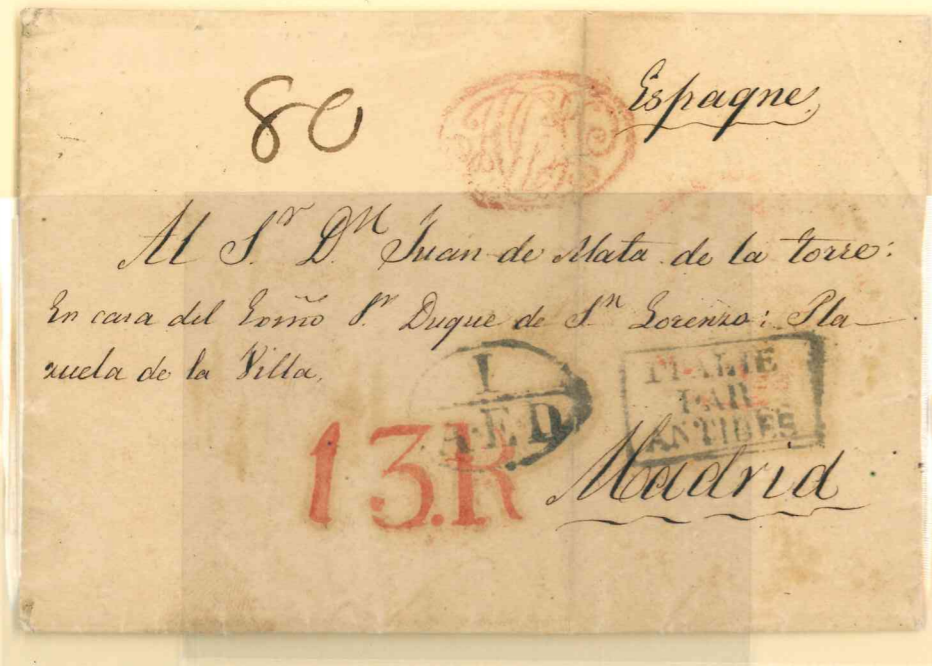 80
Espagne
Al S.r D.n Juan de Mata de la Torre:
En casa del Exmõ S.r Duque de S.n Lorenzo: Pla-
zuela de la Villa.
I
A.E.D.
ITALIE
PAR
ANTIBES
13.R
Madrid